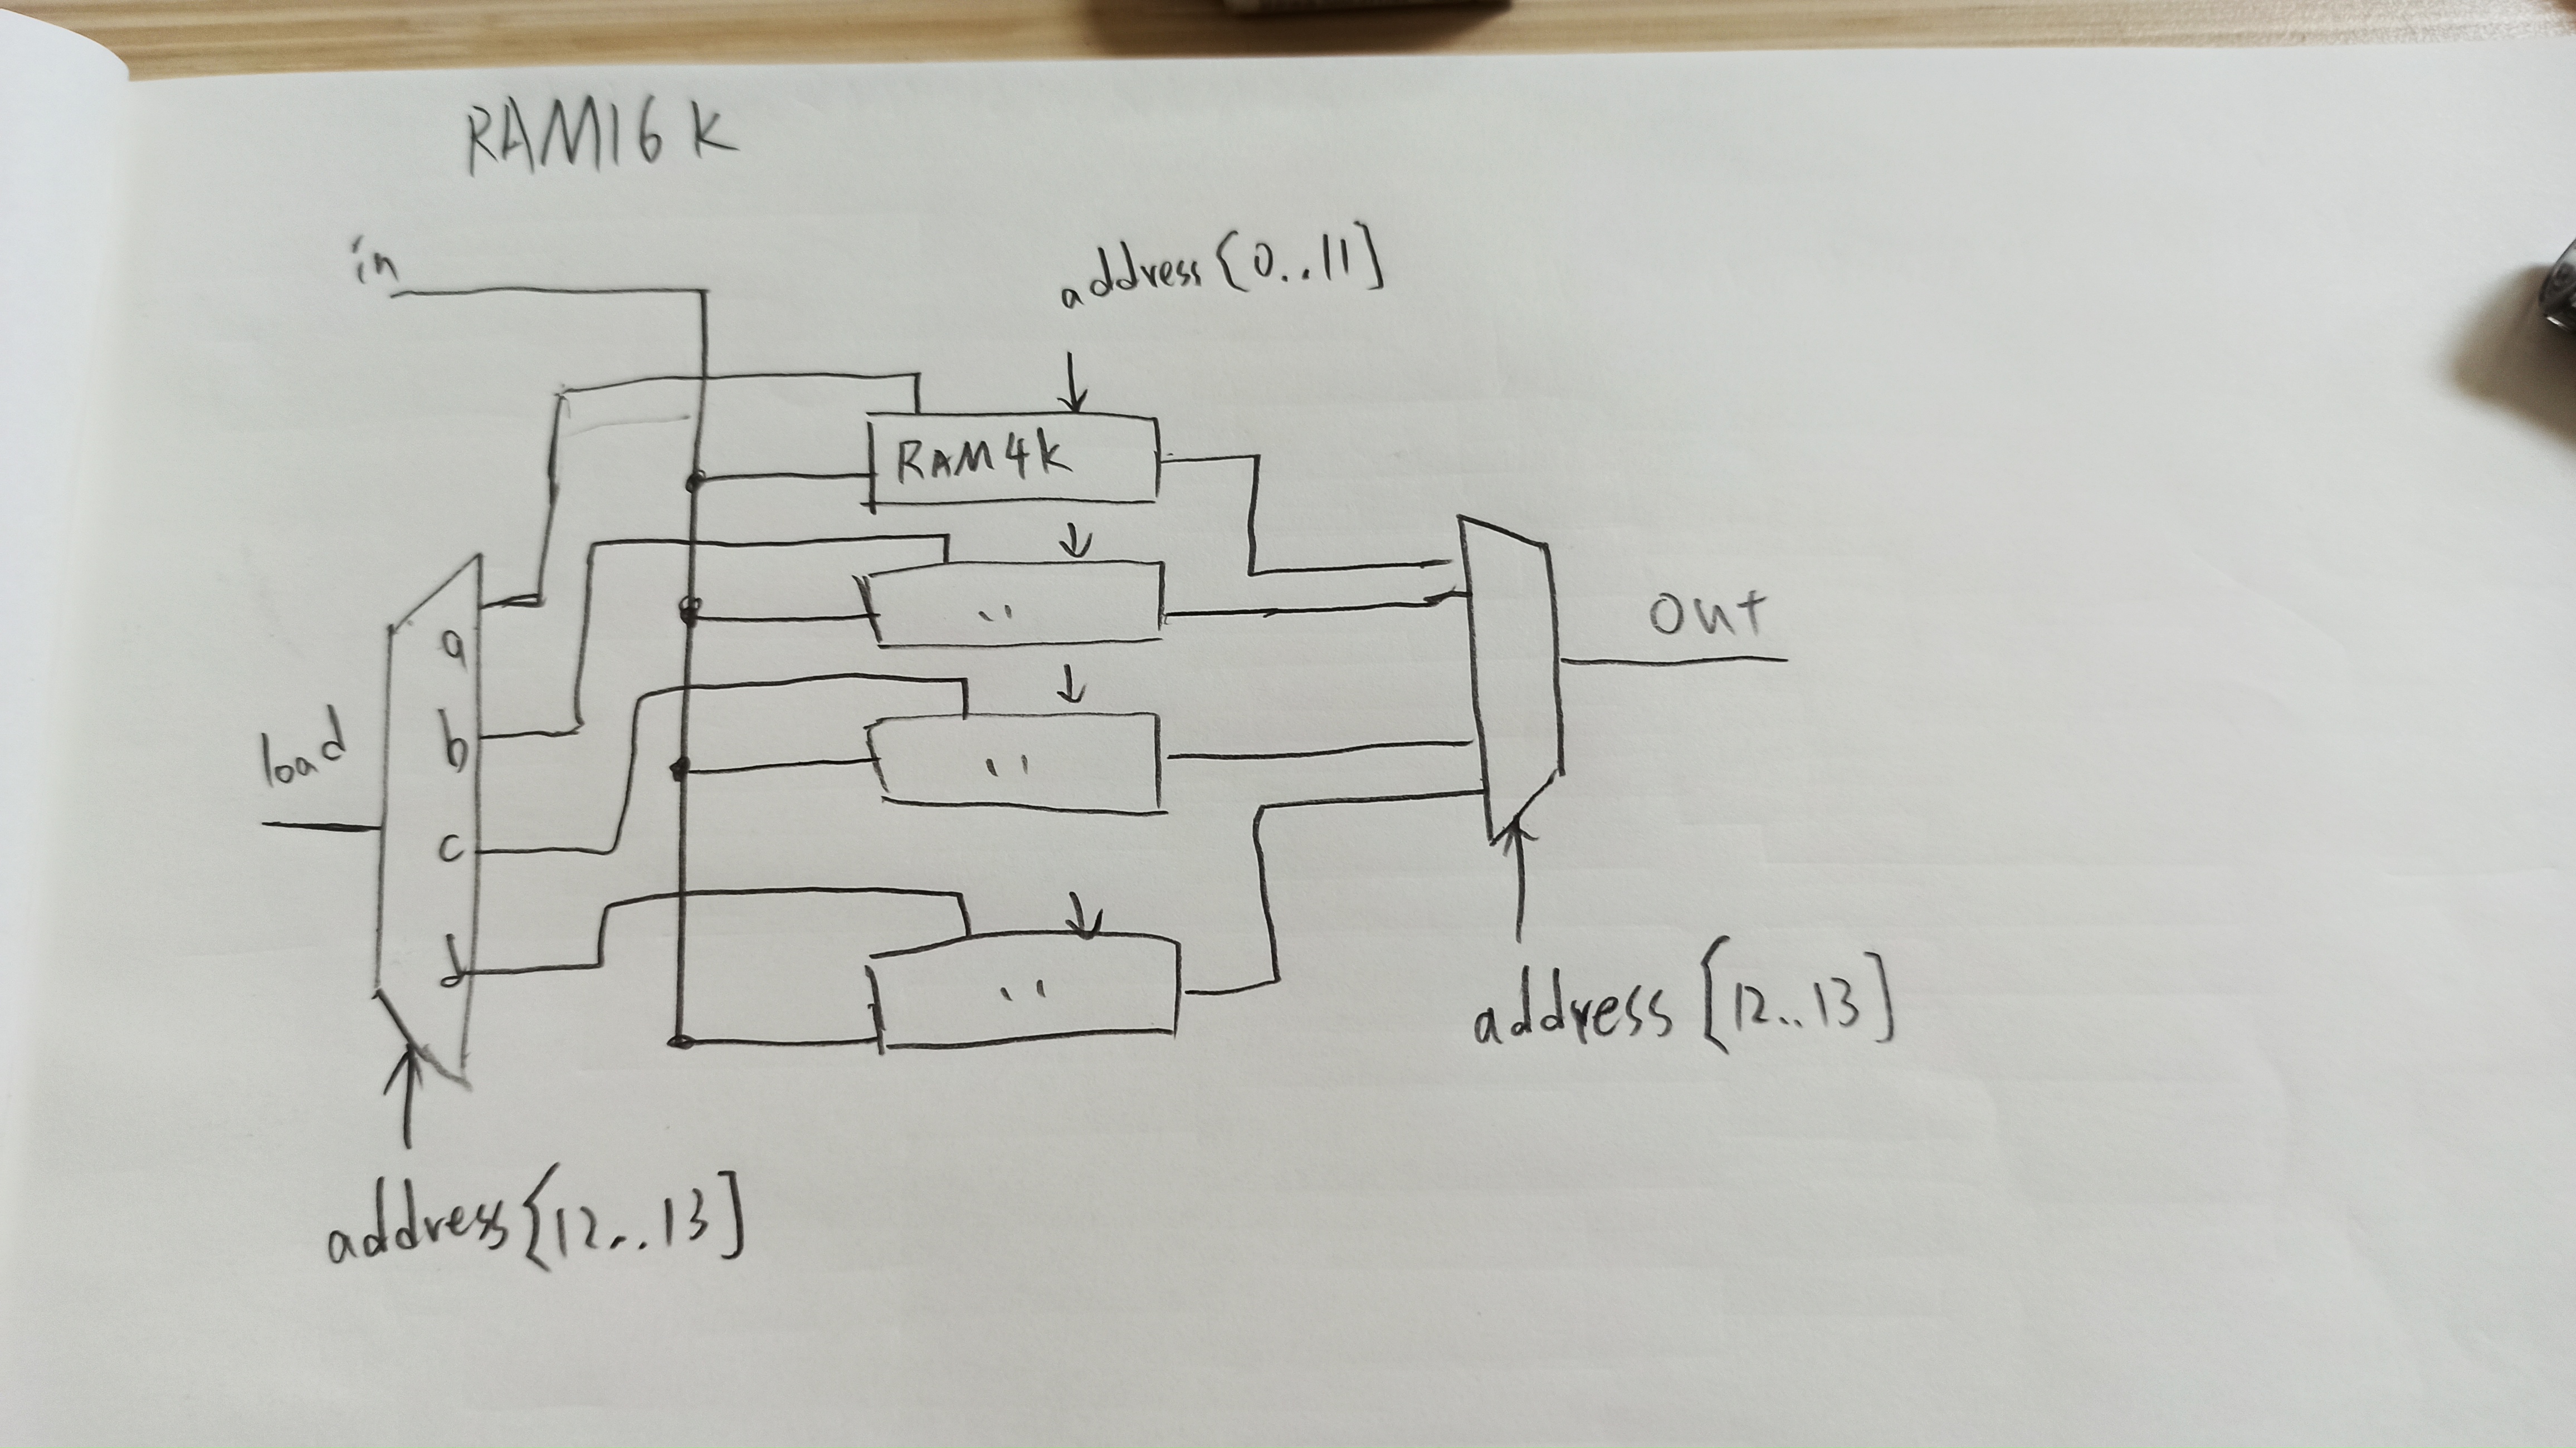 RAM16K
in
address[0..11]
RAM4K
''
''
''
a
b
c
d
load
out
address[12..13]
address[12..13]